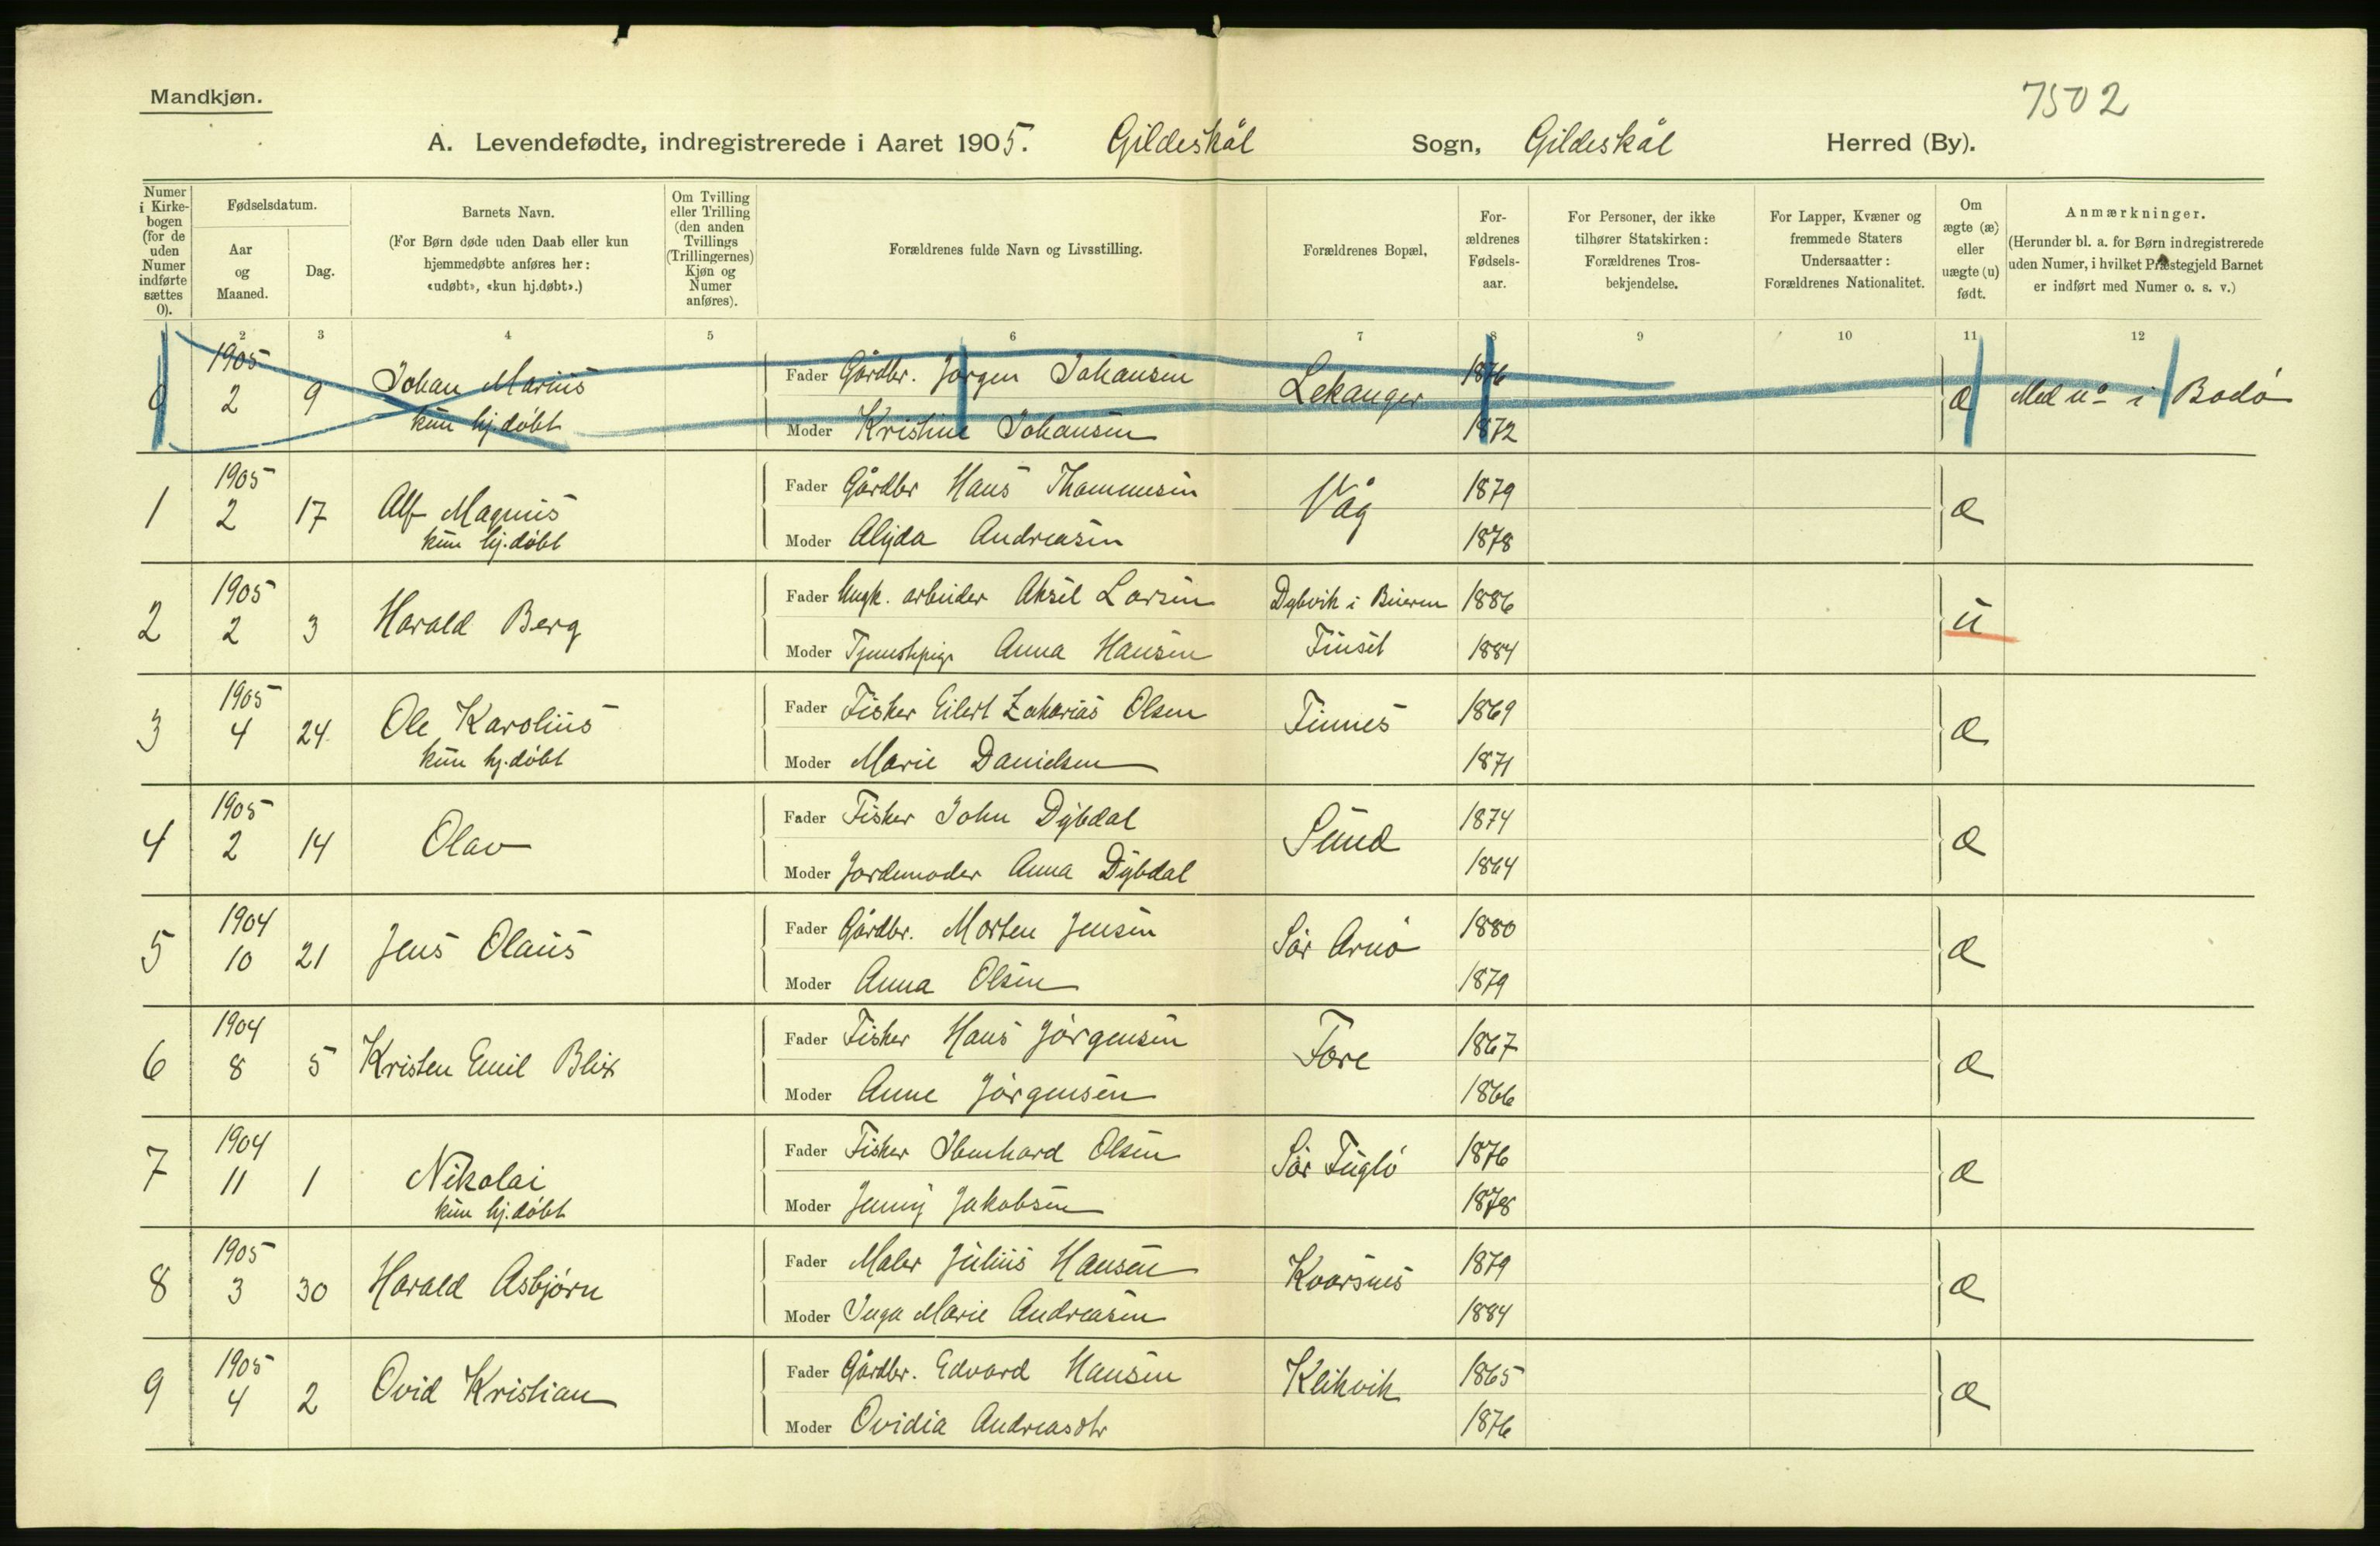 Mandkjøn.
7502
A. Levendefødte, indregistrerede i Aaret 1905. Gildeskål Sogn, Gildeskål Herred (By).
Numer i Kirkebogen (for de uden Numer indførte sættes 0).
Fødselsdatum.
Aar og Maaned.
Dag.
Barnets Navn.
(For Børn døde uden Daab eller kun
hjemmedøbte anføres her:
«udøbt», «kun hj.døbt».)
Om Tvilling
eller Trilling
(den anden
Tvillings
(Trillingernes)
Kjøn og
Numer
anføres).
Forældrenes fulde Navn og Livsstilling.
Forældrenes Bopæl,
For-
ældrenes
Fødsels-
aar.
For Personer, der ikke
tilhører Statskirken:
Forældrenes Tros-
bekjendelse.
For Lapper, Kvæner og
fremmede Staters
Undersaatter:
Forældrenes Nationalitet.
Om
ægte (æ)
eller
uægte (u)
født.
Anmærkninger.
(Herunder bl. a. for Børn indregistrerede
uden Numer, i hvilket Præstegjeld Barnet
er indført med Numer o. s. v.)
2 3 4 5 6 7 8 9 10 11 12
0 1905 2 9 Johan Marius kun hj.døbt
Fader Gårdbr. Jørgen Johansen Lekanger 1876 æ Med no i Bodø
Moder Kristine Johansen 1872
1 1905 2 17 Alf Magnus kun hj.døbt
Fader Gårdbr Hans Thommesen Våg 1879 æ
Moder Alida Andreasen 1878
2 1905 2 3 Harald Berg
Fader Ungk. arbeider Aksel Larsen Dybvik i Beieren 1886 u
Moder Tjenestepige Anna Hansen Finset 1884
3 1905 4 24 Ole Karolius kun hj.døbt
Fader Fisker Eilert Zakarias Olsen Finnes 1869 æ
Moder Marie Danielsen 1871
4 1905 2 14 Olav
Fader Fisker John Dybdal Sund 1874 æ
Moder Jordemoder Anna Dybdal 1864
5 1904 10 21 Jens Olaus
Fader Gårdbr. Morten Jensen Sør Arnø 1880 æ
Moder Anna Olsen 1879
6 1904 8 5 Kristen Emil Blix
Fader Fisker Hans Jørgensen Føre 1867 æ
Moder Anne Jørgensen 1866
7 1904 11 1 Nikolai kun hj.døbt
Fader Fisker Ibenhard Olsen Sør Fuglø 1876 æ
Moder Jenny Jakobsen 1878
8 1905 3 30 Harald Asbjørn
Fader Maler Julius Hansen Kvarsnes 1879 æ
Moder Inga Marie Andreasen 1884
9 1905 4 2 Ovid Kristian
Fader Gårdbr. Edvard Hansen Kleikvik 1865 æ
Moder Ovidia Andreasdtr 1876